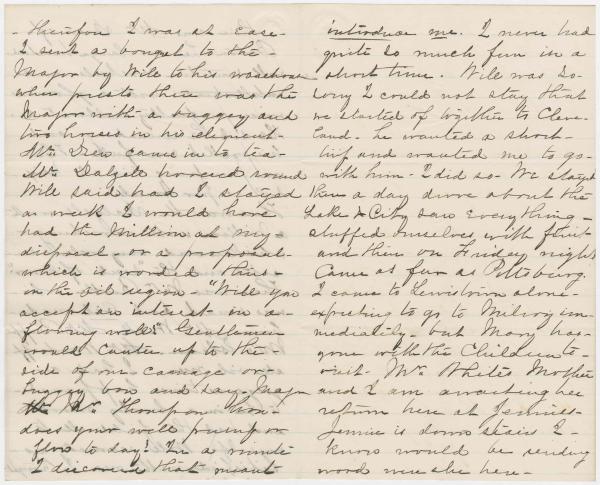 - therefore I was at ease -
I sent a boquet to the -
Major by Will to his warehouse
when presto there was the
Major with a buggey and
two horses in his element -
Mr. Drew came in to tea -
Mr Dalzell hovered round
Will said had I stayed
a week I would have
had the Million at my
disposal - or a proposal -
which is worded thus -
in the oil region - "Will you
accept an interest in a
flowing well?" Gentlemen
would canter up to the -
side of our carriage or -
buggey bow and say - Major
Mr. Thompson how -
does your well pump or
flow to day? In a minute
I discovered that meant
introduce me. I never had
quite so much fun in a
short time. Will was so -
sorry I could not stay that
we started of together to Cleve-
land - he wanted a short -
trip and wanted me to go -
with him - I did so - We stayed
there a day drove about the
Lake & City saw everything -
stuffed ourselves with fruit
and then on Friday night
came as far as Pittsburg.
I came to Lewistown alone -
expecting to go to Milroy im-
mediately - but Mary has -
gone with the Children to -
visit - Mr. White's Mother
and I am awaiting her
return here at Jennies -
Jennie is down stairs I -
know would be sending
word were she here -